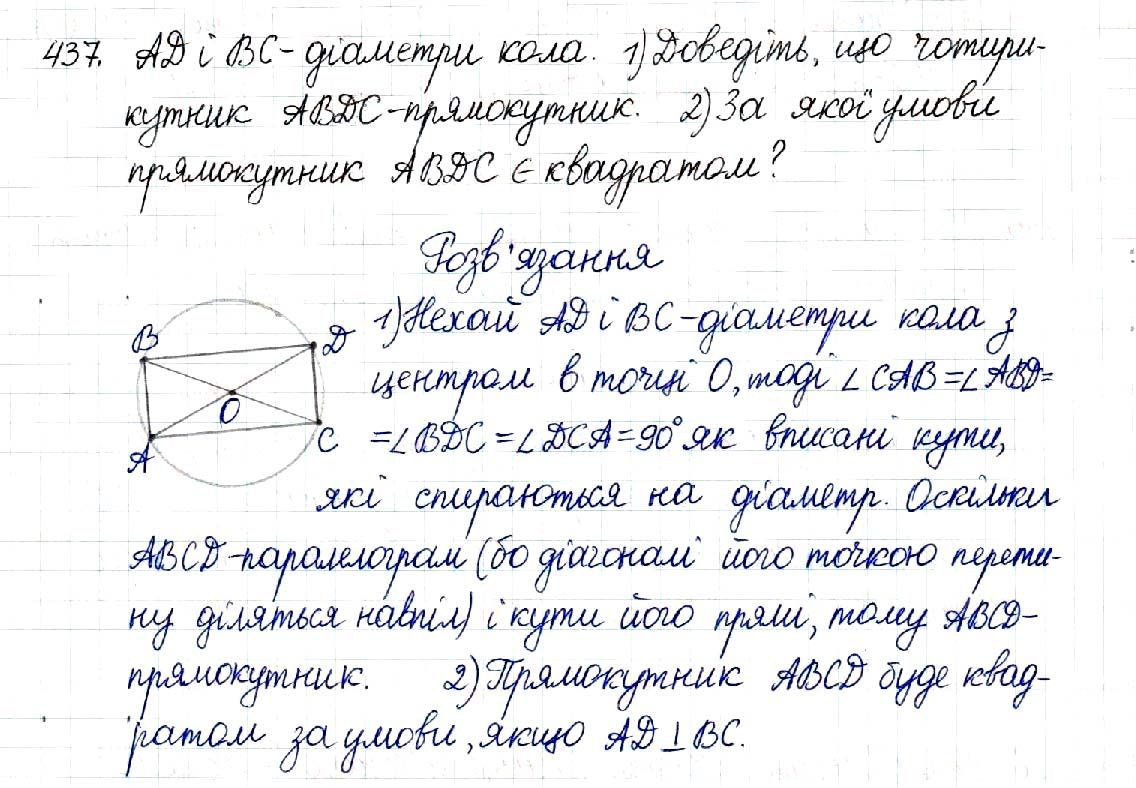 437. AD і BC-діаметри кола. 1) Доведіть, що чотири-
кутник ABDC-прямокутник. 2) За якої умови
прямокутник ABDC є квадратом?
Розв'язання
1) Нехай AD і BC-діаметри кола з
центром в точці O, тоді ∠CAB=∠ABD=
=∠BDC=∠DCA=90° як вписані кути,
які спираються на діаметр. Оскільки
ABCD-паралелограм (бо діагоналі його точкою перети-
ну діляться навпіл) і кути його прямі, тому ABCD-
прямокутник. 2) Прямокутник ABCD буде квад-
ратом за умови, якщо AD⊥BC.
B
D
O
A
C